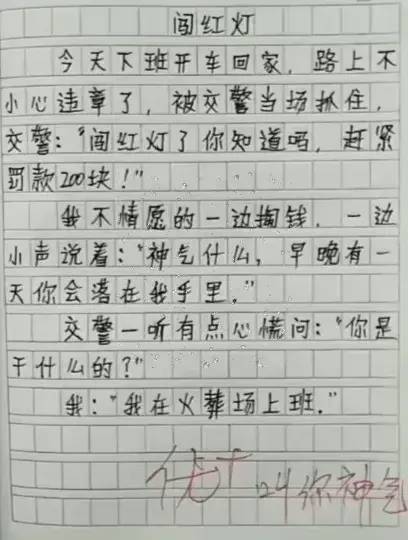 闯红灯
今天下班开车回家，路上不
小心违章了，被交警当场抓住，
交警：“闯红灯了你知道吗，赶紧
罚款200块！”
我不情愿的一边掏钱，一边
小声说着：“神气什么，早晚有一
天你会落在我手里．”
交警一听有点心慌问：“你是
干什么的？”
我：“我在火葬场上班．”
优+ 叫你神气